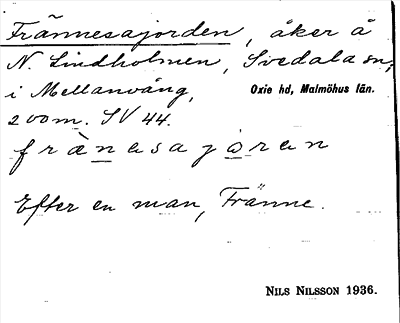 Frännesajorden, åker å
N. Lindholmen, Svedala sn,
i Mellanvång, Oxie hd, Malmöhus län.
200m. SV 44.
frànesajoren
Efter en man, Fränne.
NILS NILSSON 1936.